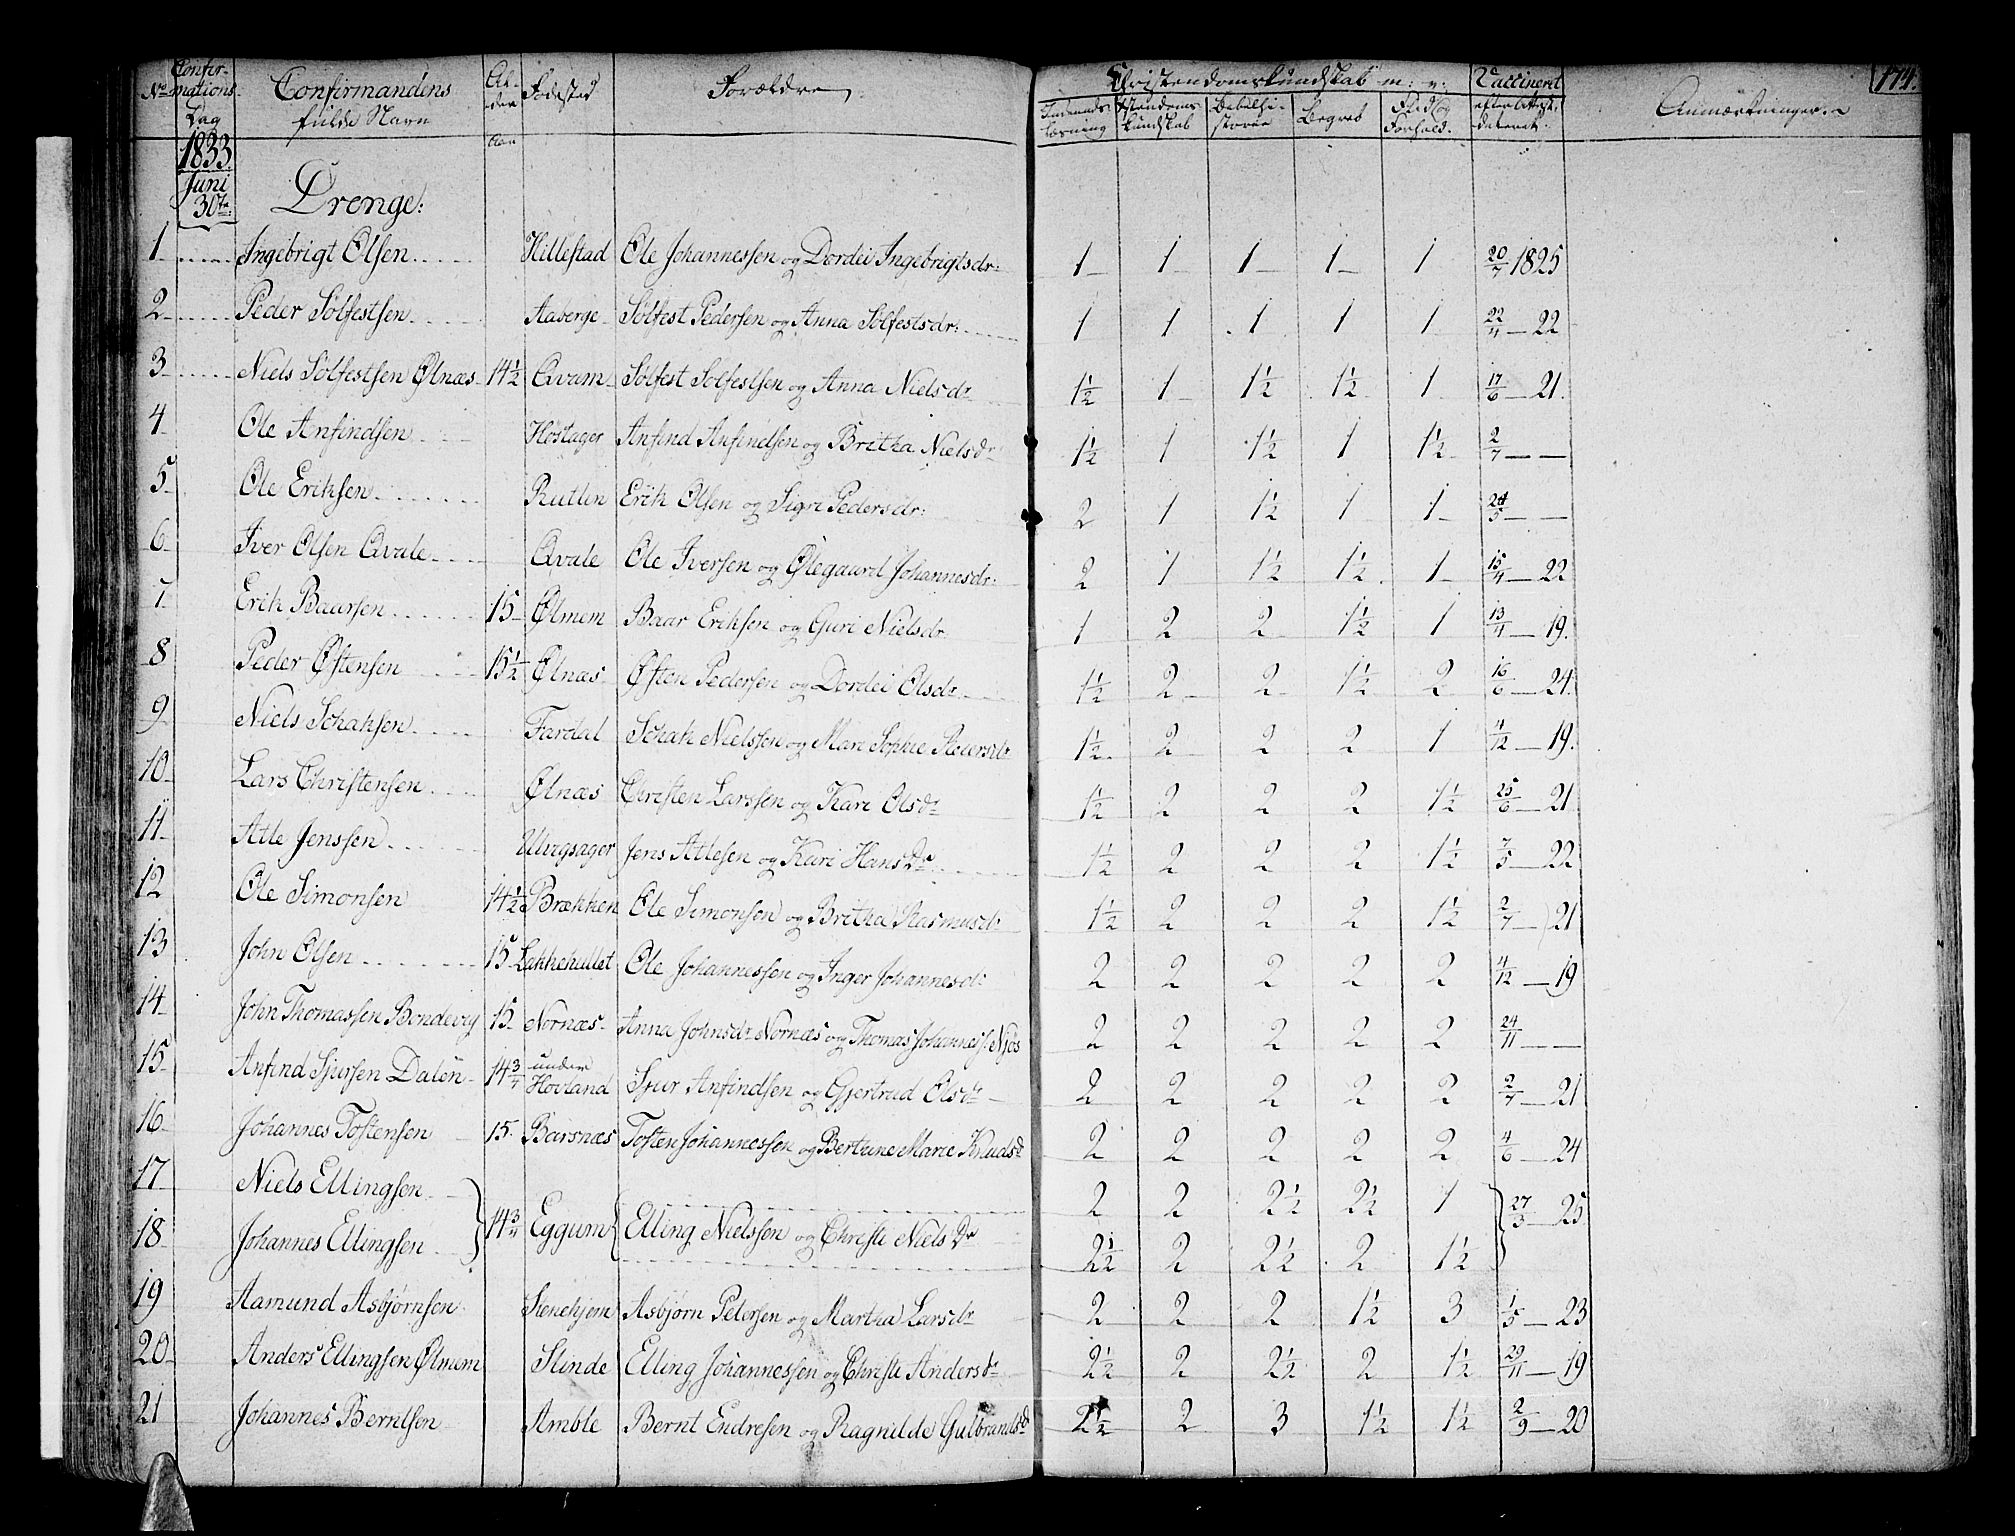 174.
No Confirmations Dag | Confirmandens fulde Navn | Alder Aar | Fødested | Forældre | Christendomskundskab m: v: | Vaccineret | Anmærkninger
Indenadslæsning | Xstendomskundskab | Bibelhistorie | Begreb | Flid og Forhold. | efter Attest. dateret.
1833
Juni
30te
Drenge:
1 Ingebrigt Olsen Hillestad Ole Johannessen og Dordei Ingebrigtsdr: 1 1 1 1 1 20/7 1825
2 Peder Sølfestsen Aaberge Sølfest Pedersen og Anna Sølfestsdr: 1 1 1 1 1 22/4 — 22
3 Niels Sølfestsen Ølnæs 14½ Qvam Sølfest Sølfestsen og Anna Nielsdr 1½ 1 1½ 1½ 1 17/6 — 21.
4 Ole Anfindsen Høstager Anfind Anfindsen og Britha Nielsdr 1½ 1 1½ 1 1½ 2/7 — —
5 Ole Eriksen Rutlin Erik Olsen og Sigri Pedersdr: 2 1 1½ 1 1 /5 — —
6 Iver Olsen Qvale Qvale Ole Iversen og Ølegaard Johannesdr: 2 1 1½ 1½ 1 15/4 — 22
7 Erik Baarsen 15 Ølmem Baar Eriksen og Guri Nielsdr 1 2 2 1½ 1 13/4 — 19.
8 Peder Østensen 15½ Ølnæs Østen Pedersen og Dordei Olsdr 1½ 2 2 1½ 2 16/6 — 24.
9 Niels Schaksen Fardal Schak Nielssen og Mari Sophie Pedersdr 1½ 2 2 2 1 4/12 — 19.
10 Lars Christensen Ølnæs Christen Larssen og Kari Olsdr 1½ 2 2 2 1½ 25/6 — 21
11 Atle Jenssen Ulvgsager Jens Atlesen og Kari Hans Dr 1½ 2 2 2 1½ 7/5 — 22
12 Ole Simonsen 14½ Brækken Ole Simonsen og Britha Rasmusdr 1½ 2 2 2 1½ 2/7 — 21
13 John Olsen 15 Lækkehullet Ole Johannessen og Inger Johannesdr 2 2 2 2 2 4/12 — 19
14 John Thomassen Bondevig 15 Nornæs Anna Johnsdr Nornæs og Thomas Johanness. Njøs 2 2 2 2 2 24/11 — —
15 Anfind Sjursen Dalen 14¾ under Hovland Sjur Anfindsen og Gjertrud Olsdr 2 2 2 2 2 2/7 — 21
16 Johannes Tostensen 15 Barsnæs Tosten Johannessen og Bertine Marie Knudsdr 2 2 2 2 2 4/6 — 24
17 Niels Ellingsen 2 2 2½ 2½ 1
14¾ Eggum Elling Nielssen og Christi Niels Dr 27/3 — 25
18 Johannes Ellingsen 2½ 2 2½ 2 1½
19 Aamund Asbjørnsen Stenehjem Asbjørn Pedersen og Martha Larsdr 2 2 2 1½ 3 1/5 — 23
20 Anders Ellingsen Ølmem Slinde Elling Johannessen og Christi Andersdr 2½ 2 2½ 2 1½ 29/11 — 19
21 Johannes Berntsen Amble Bernt Endresen og Ragnilde Gulbrandsdr 2½ 2 3 1½ 1½ 2/9 — 20